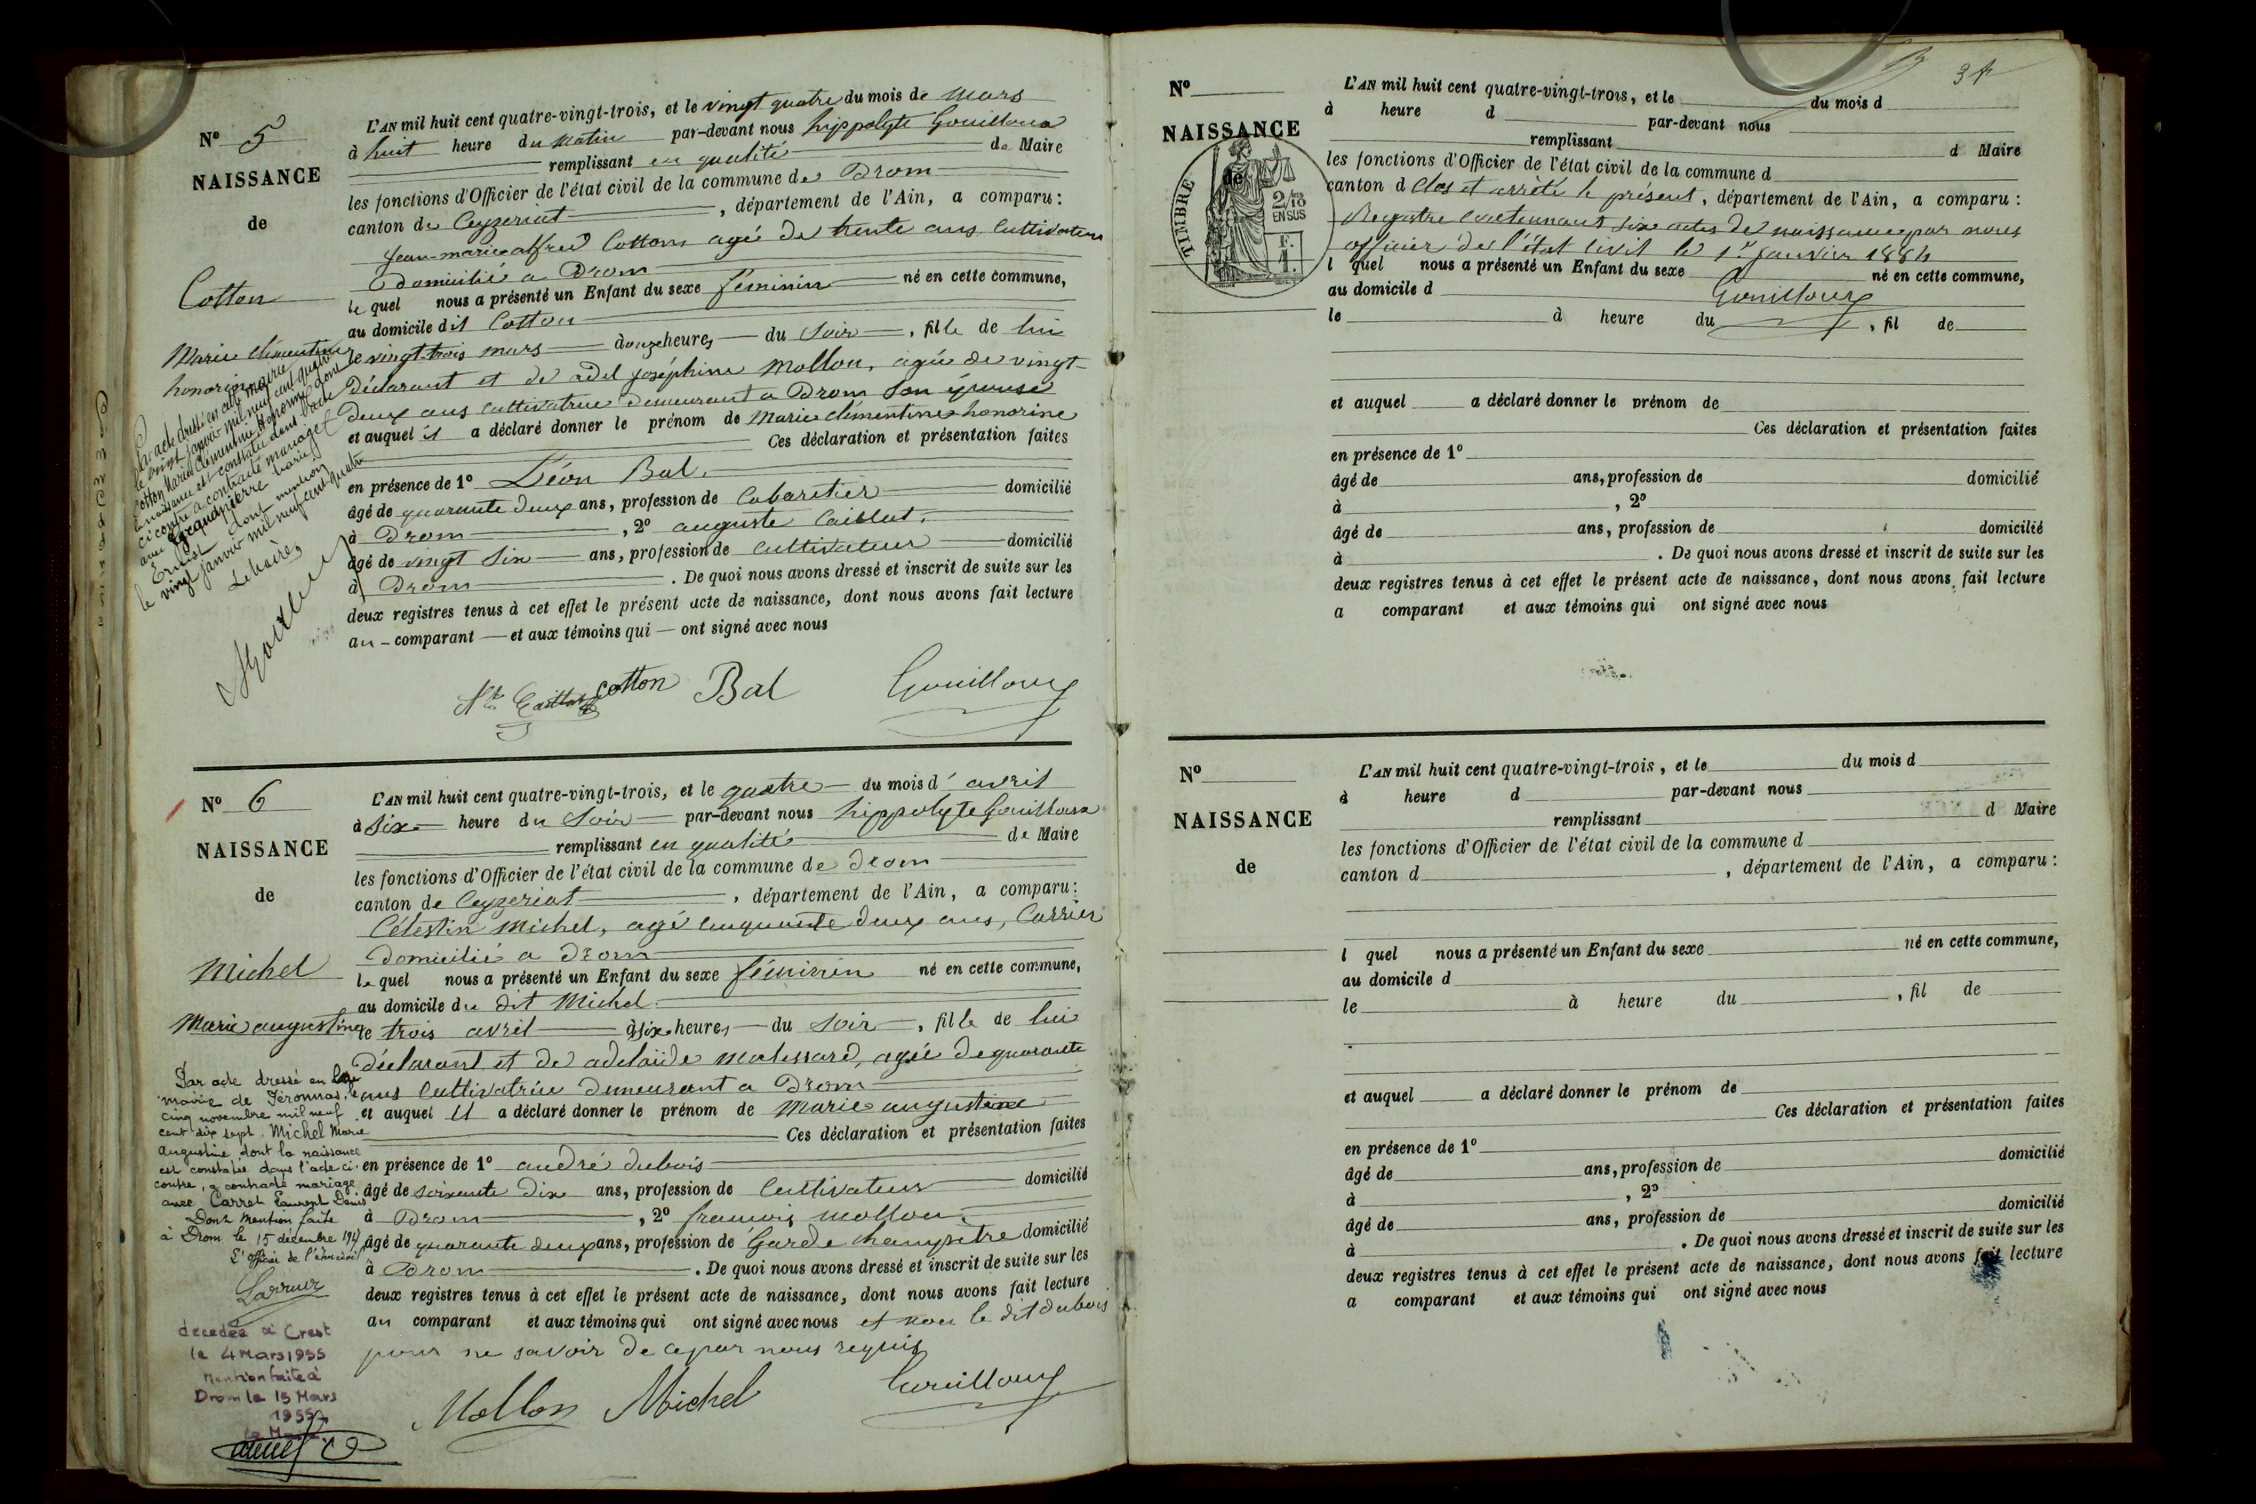 N° 5
NAISSANCE
de
Cotton
Marie Clémentine
honorine
Par acte dressé en cette mairie
le vingt janvier mil neuf cent quatre
Cotton Marie Clémentine Honorine dont
la naissance est constatée dans l'acte
ci contre a contracté mariage
avec Grandpierre Marie
Ernest dont mention
le vingt janvier mil neuf cent quatre
Le Maire,
L'AN mil huit cent quatre-vingt-trois, et le vingt quatre du mois de mars
à huit heure du matin par-devant nous hippolyte Gouilloux
remplissant en qualité de Maire
les fonctions d'Officier de l'état civil de la commune de Drom
canton de Ceyzeriat, département de l'Ain, a comparu :
Jean-marie alfred Cotton agé de trente ans Cultivateur
domicilié a Drom
le quel nous a présenté un Enfant du sexe féminin né en cette commune,
au domicile dit Cotton
le vingt-trois mars douze heures du soir, fille de lui
déclarant et de adel joséphine Mollon, agée de vingt-
deux ans cultivatrice demeurant a Drom son épouse
et auquel il a déclaré donner le prénom de Marie clémentine honorine
Ces déclaration et présentation faites
en présence de 1° Léon Bal.
âgé de quarante deux ans, profession de Cabaretier domicilié
à Drom, 2° auguste Caillat.
âgé de vingt six ans, profession de cultivateur domicilié
à Drom. De quoi nous avons dressé et inscrit de suite sur les
deux registres tenus à cet effet le présent acte de naissance, dont nous avons fait lecture
au comparant et aux témoins qui ont signé avec nous
cotton Bal Gouilloux
N° 6
NAISSANCE
de
Michel
Marie augustine
Par acte dressé en la
mairie de Jéronnas, le
cinq novembre mil neuf
cent dix sept, Michel Marie
Augustine, dont la naissance
est constatée dans l'acte ci-
contre, a contracté mariage
avec Carrel Laurent Denis
Dont Mention faite
à Drom le 15 décembre 1917
L'officier de l'état civil
décédée à Crest
le 4 Mars 1955
Mention faite à
Drom le 15 Mars
1955
Le Maire
L'AN mil huit cent quatre-vingt-trois, et le quatre du mois d'avril
à six heure du soir par-devant nous hippolyte Gouilloux
remplissant en qualité de Maire
les fonctions d'Officier de l'état civil de la commune de drom
canton de Ceyzeriat, département de l'Ain, a comparu :
Célestin Michel, agé cinquante deux ans, Carrier
domicilié a Drom
le quel nous a présenté un Enfant du sexe féminin né en cette commune,
au domicile du dit Michel
le trois avril à six heures du soir, fille de lui
déclarant et de adelaïde Matessard, agée de quarante
ans Cultivatrice demeurant a Drom
et auquel il a déclaré donner le prénom de Marie augustine
Ces déclaration et présentation faites
en présence de 1° andré dubois
âgé de soixante dix ans, profession de Cultivateur domicilié
à Drom, 2° françois Mollon.
âgé de quarante deux ans, profession de Garde champêtre domicilié
à Drom. De quoi nous avons dressé et inscrit de suite sur les
deux registres tenus à cet effet le présent acte de naissance, dont nous avons fait lecture
au comparant et aux témoins qui ont signé avec nous et non le dit dubois
pour ne savoir de ce par nous requis
Mollon Michel Gouilloux
N°
NAISSANCE
de
TIMBRE
2/10
EN SUS
F.
1.
L'AN mil huit cent quatre-vingt-trois, et le du mois d
à heure d par-devant nous
remplissant d Maire
les fonctions d'Officier de l'état civil de la commune d
canton d Clos et arrêté le présent, département de l'Ain, a comparu :
Registre contenant six actes de naissance par nous
officier de l'état civil le 1er janvier 1884
l quel nous a présenté un Enfant du sexe né en cette commune,
au domicile d Gouilloux
le à heure du, fil de
et auquel a déclaré donner le prénom de
Ces déclaration et présentation faites
en présence de 1°
âgé de ans, profession de domicilié
à, 2°
âgé de ans, profession de domicilié
à. De quoi nous avons dressé et inscrit de suite sur les
deux registres tenus à cet effet le présent acte de naissance, dont nous avons fait lecture
a comparant et aux témoins qui ont signé avec nous
N°
NAISSANCE
de
L'AN mil huit cent quatre-vingt-trois, et le du mois d
à heure d par-devant nous
remplissant d Maire
les fonctions d'Officier de l'état civil de la commune d
canton d, département de l'Ain, a comparu :
l quel nous a présenté un Enfant du sexe né en cette commune,
au domicile d
le à heure du, fil de
et auquel a déclaré donner le prénom de
Ces déclaration et présentation faites
en présence de 1°
âgé de ans, profession de domicilié
à, 2°
âgé de ans, profession de domicilié
à. De quoi nous avons dressé et inscrit de suite sur les
deux registres tenus à cet effet le présent acte de naissance, dont nous avons fait lecture
a comparant et aux témoins qui ont signé avec nous